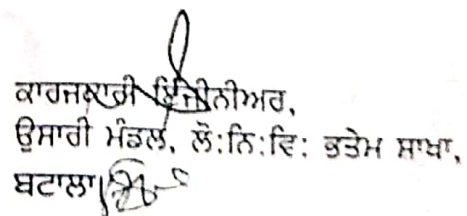 ਕਾਰਜਕਾਰੀ ਇੰਜੀਨੀਅਰ,
ਉਸਾਰੀ ਮੰਡਲ, ਲੋ:ਨਿ:ਵਿ: ਭਤੇਮ ਸਾਖਾ,
ਬਟਾਲਾ।